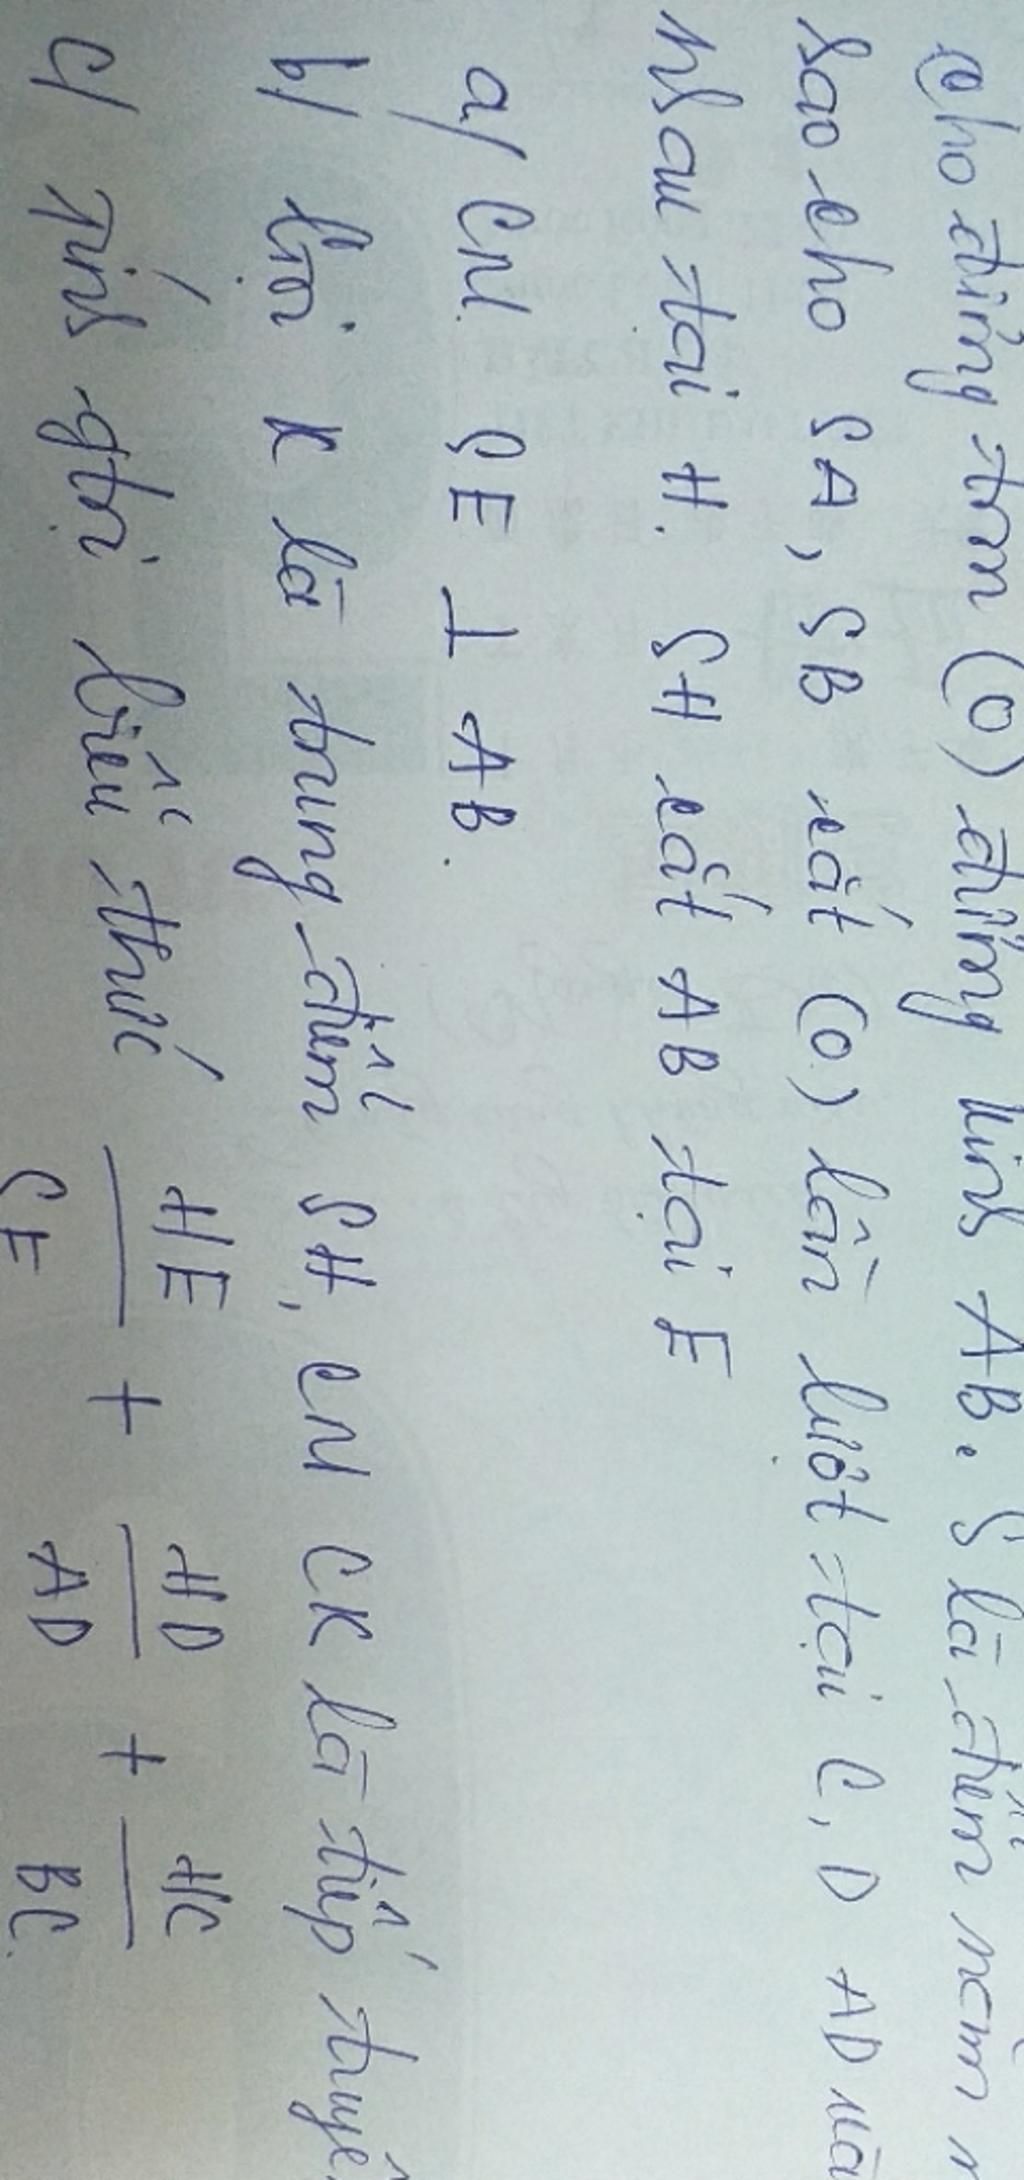 Cho đường tròn (O) đường kính AB. S là điểm nằm
sao cho SA, SB cắt (O) lần lượt tại C, D AD và
nhau tại H. SH cắt AB tại E
a/ CM SE ⊥ AB.
b/ Gọi K là trung điểm SH, CM CK là tiếp
c/ Tính gtrị biểu thức HE/SE + HD/AD + HC/BC